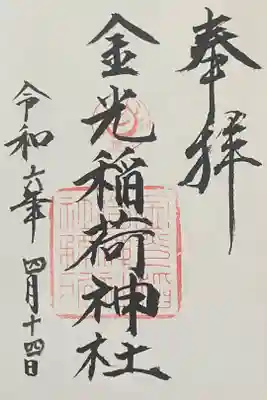 奉拝
金光稲荷神社
令和六年 四月十四日